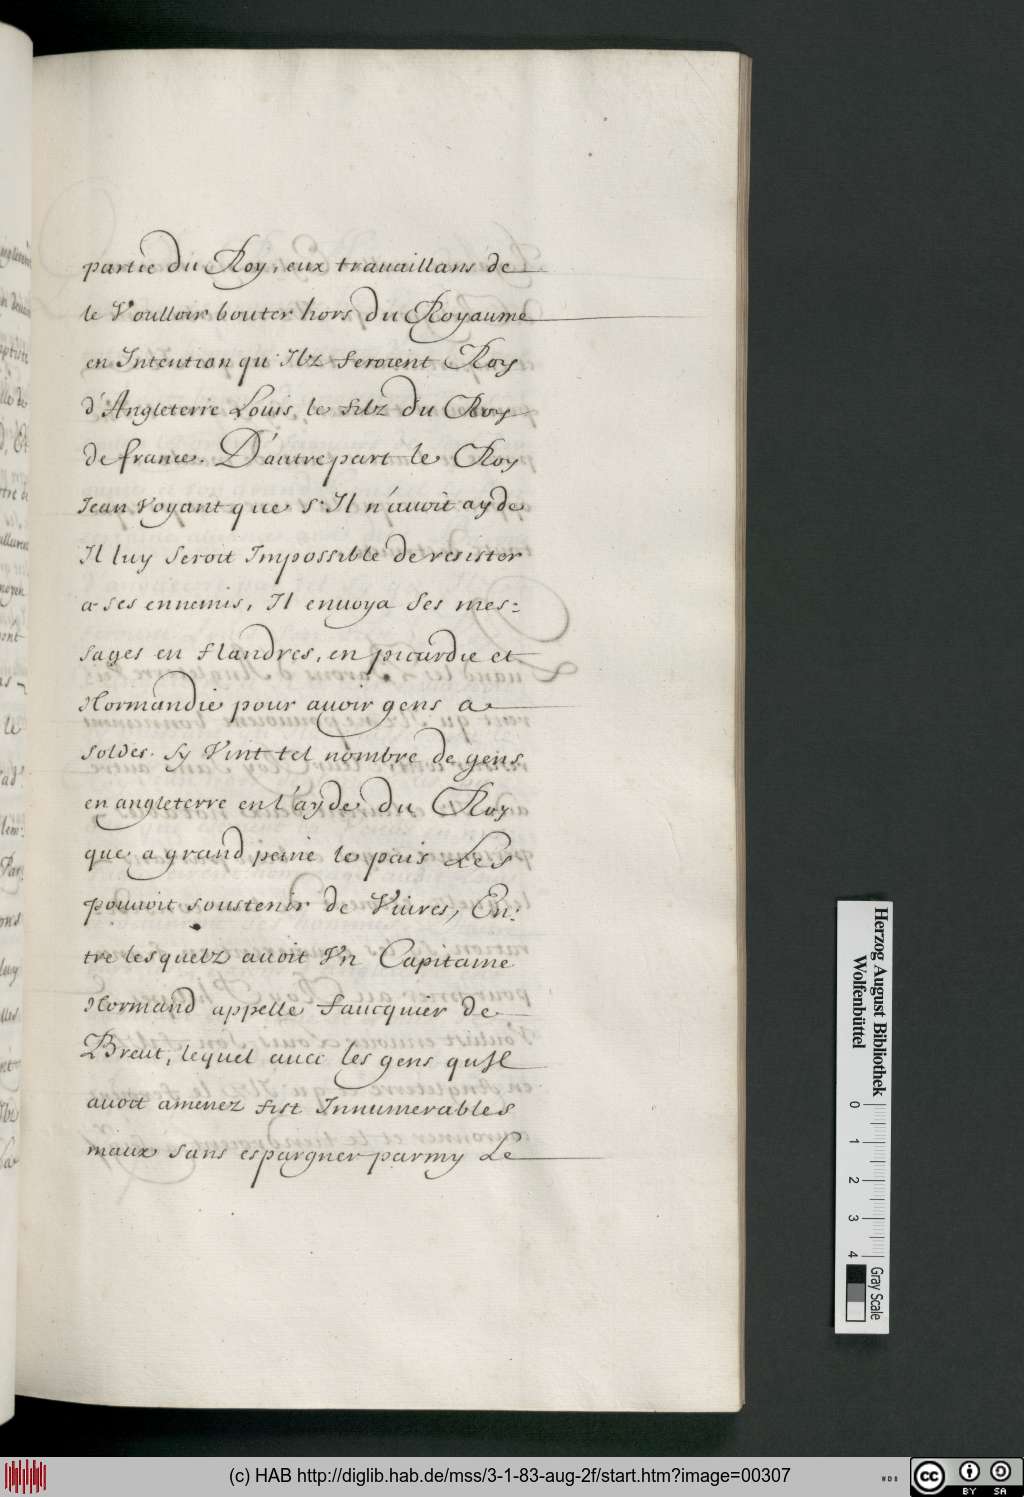 partie du Roy, eux trauaillans de
le Voulloir bouter hors du Royaume
en Intention qu'Ilz feroient Roy
d'Angleterre Louis, le filz du Roy
de france. D'autre part le Roy
Jean voyant que s'Il n'auoit ayde
Il luy seroit Impossible de resister
a ses ennemis, Il enuoya ses mes:
sages en flandres, en picardie et
Normandie pour auoir gens a
soldes. sy Vint tel nombre de gens
en angleterre en l'ayde du Roy
que a grand peine le pais Les
pouuoit soustenir de Viures, En:
tre lesquelz auoit Vn Capitaine
Normand appelle faucquier de
Breut, lequel auec les gens qu'Il
auoit amenez fist Innumerables
maux sans espargner parmy Le
Herzog August Bibliothek
Wolfenbüttel
0 1 2 3 4
Gray Scale
(c) HAB http://diglib.hab.de/mss/3-1-83-aug-2f/start.htm?image=00307
cc BY SA